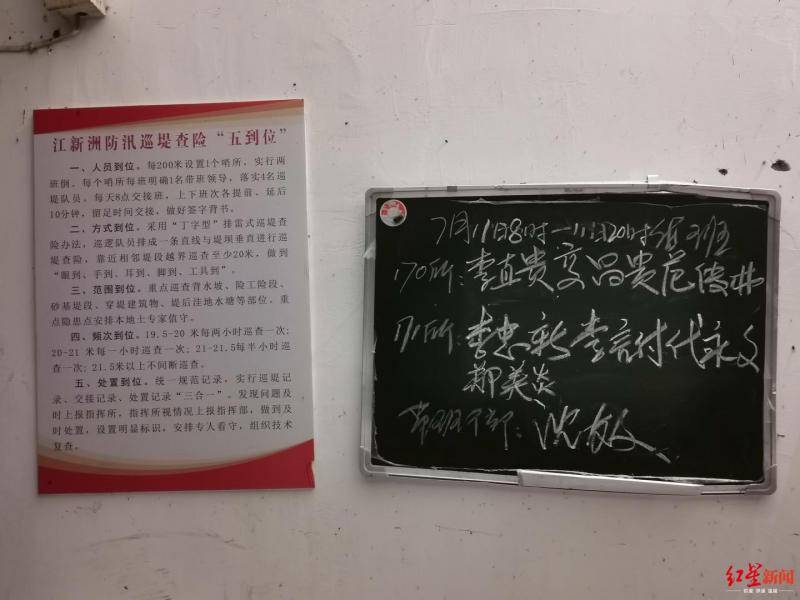 江新洲防汛巡堤查险“五到位”
一、人员到位。每200米设置1个哨所，实行两
班倒。每个哨所每班明确1名带班领导，落实4名巡
堤队员。每天8点交接班，上下班次各提前、延后
10分钟，留足时间交接，做好签字背书。
二、方式到位。采用“丁字型”排雷式巡堤查
险办法，巡逻队员排成一条直线与堤坝垂直进行巡
堤查险，靠近相邻堤段越界巡查至少20米，做到
“眼到、手到、耳到、脚到、工具到”。
三、范围到位。重点巡查背水坡、险工险段、
砂基堤段、穿堤建筑物、堤后洼地水塘等部位，重
点隐患点安排本地土专家值守。
四、频次到位。19.5-20 米每两小时巡查一次；
20-21 米每一小时巡查一次；21-21.5每半小时巡
查一次；21.5米以上不间断巡查。
五、处置到位。统一规范记录，实行巡堤记
录、交接记录、处置记录“三合一”。发现问题及
时上报指挥所，指挥所视情况上报指挥部，做到及
时处置，设置明显标识，安排专人看守，组织技术
复查。
7月11日8时一11日20时 班
170所：李直贵 昌贵范
171所：李忠新 李 代永文
郑美炎
带班干部：沈敏
红星新闻